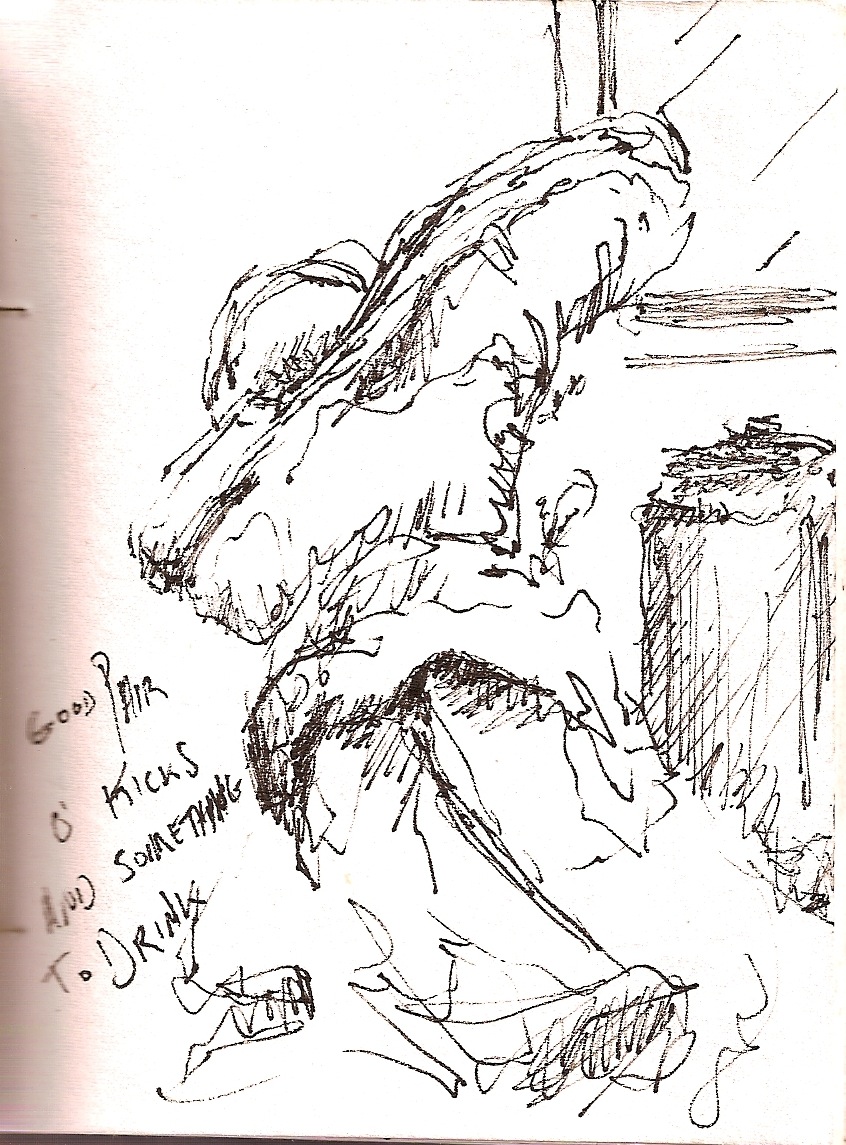 GOOD PAIR
O' KICKS
AND SOMETHING
TO DRINK